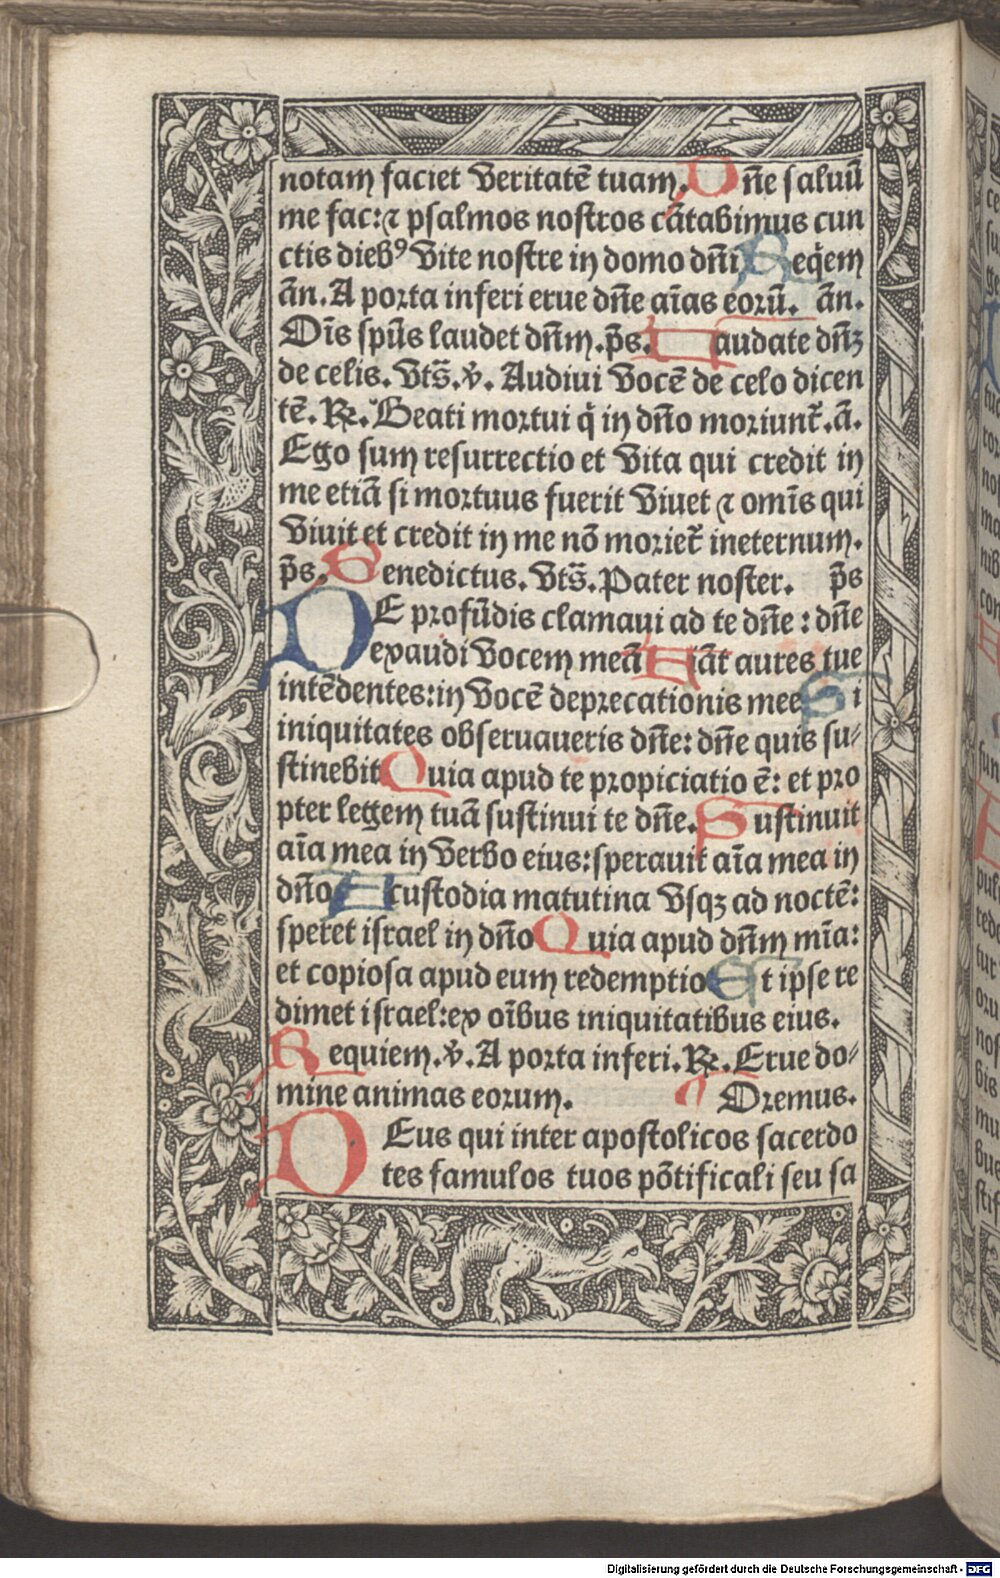 notam faciet veritatē tuam. Dñe saluū
me fac: ⁊ psalmos nostros cātabimus cun
ctis dieb⁹ vite nostre in domo dñi Req̄em
añ. A porta inferi erue dñe aīas eorū. añ.
Oīs spūs laudet dñm. p̄s. Laudate dñꝫ
de celis. Vts̄. ꝟ. Audiui vocē de celo dicen
tē. ℟. Beati mortui q̄ in dño moriunt̄. ā.
Ego sum resurrectio et vita qui credit in
me etiā si mortuus fuerit viuet ⁊ omīs qui
viuit et credit in me nō moriet̄ ineternum.
p̄s. Benedictus. Vts̄. Pater noster. p̄s
DE profūdis clamaui ad te dñe : dñe
exaudi vocem meā Fiāt aures tue
intēdentes: in vocē deprecationis mee Si
iniquitates obseruaueris dñe: dñe quis su⸗
stinebit Quia apud te propiciatio ē: et pro
pter legem tuā sustinui te dñe. Sustinuit
aīa mea in verbo eius: sperauit aīa mea in
dño A custodia matutina vsqꝫ ad noctē:
speret israel in dño Quia apud dñm mīa:
et copiosa apud eum redemptio Et ipse re
dimet israel: ex oībus iniquitatibus eius.
Requiem. ꝟ. A porta inferi. ℟. Erue do⸗
mine animas eorum. Oremus.
DEus qui inter apostolicos sacerdo
tes famulos tuos pōtificali seu sa
Digitalisierung gefördert durch die Deutsche Forschungsgemeinschaft - DFG